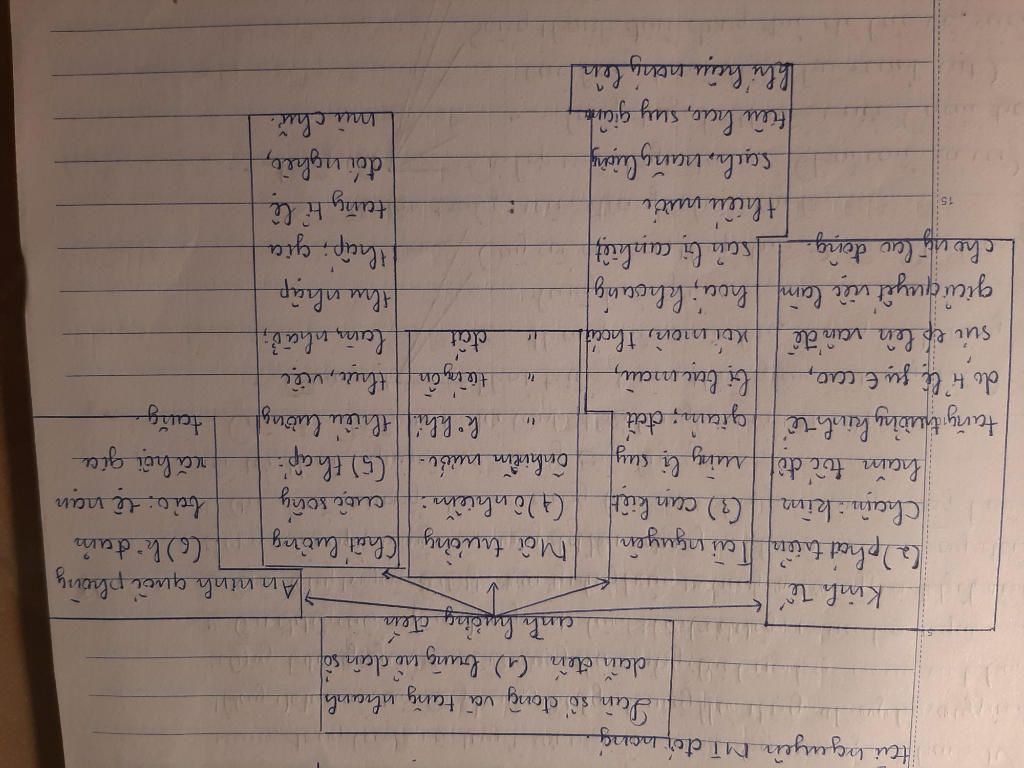 tài nguyên MT đới nóng.
Dân số đông và tăng nhanh
dẫn đến (1) bùng nổ dân số
ảnh hưởng đến
Kinh tế
(2) phát triển
chậm: kìm
hãm tốc độ
tăng trưởng kinh tế
do tỉ lệ
cao,
sức ép lên vấn đề
giải quyết việc làm
cho ng lao động.
Tài nguyên
(3) cạn kiệt
rừng bị suy
giảm; đất
bị bạc màu,
xói mòn, thoái
hoá; khoáng
sản bị cạn kiệt
thiếu nước
sạch, năng lượng
tiêu hao, suy giảm
khí hậu nóng lên
Môi trường
(4) ô nhiễm:
ô nhiễm nước.
" k° khí
" tiếng ồn
" đất
Chất lượng
cuộc sống
(5) thấp:
thiếu lương
thực, việc
làm, nhà ở;
thu nhập
thấp; gia
tăng tỉ lệ
đói nghèo,
mù chữ.
An ninh quốc phòng
(6) k° đảm
bảo: tệ nạn
xã hội gia
tăng.
15
5